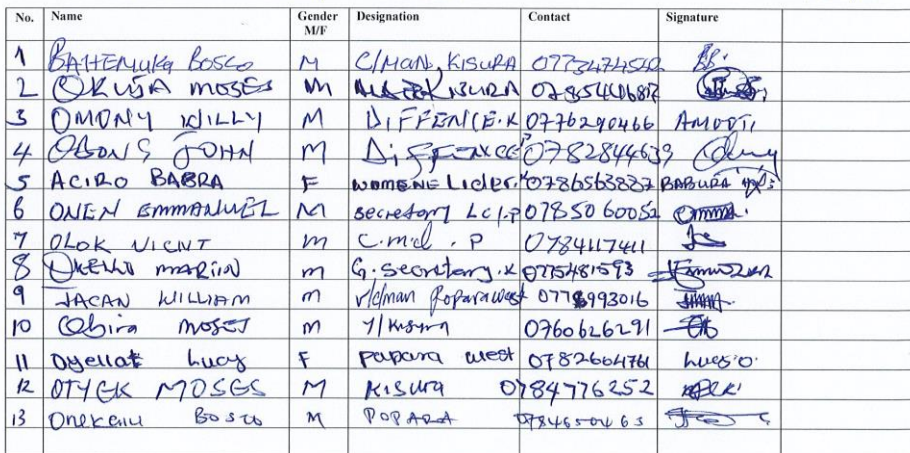 No. Name Gender M/F Designation Contact Signature
1 BAHEMUKA BOSCO M C/MAN, KISURA
2 OKUJA MOSES M KISURA
3 OMONY WILLY M DIFFENCE.K 0776290466 AMOOTI
4 OBONG JOHN M DiFFENCE 0782844639
5 ACIRO BABRA F WOMENE Lider. 0786563887 BABURA
6 ONEN EMMANUEL M secretary LC1.P 0785060052
7 OLOK VICNT M C.md . P 0784117411
8 OKELLO MARIIN M G. Secretary .K 0775481593
9 JACAN WILLIAM M v/c/man Poparawest 0778993016
10 Obira MOSES M Y/Kisura 0760626291
11 Oyellat Lucy F papara west 0782664761 Lucy.O.
12 OTYEK MOSES M KISURA 0784776252
13 Onekalu BOSCO M POPARA 0784650463